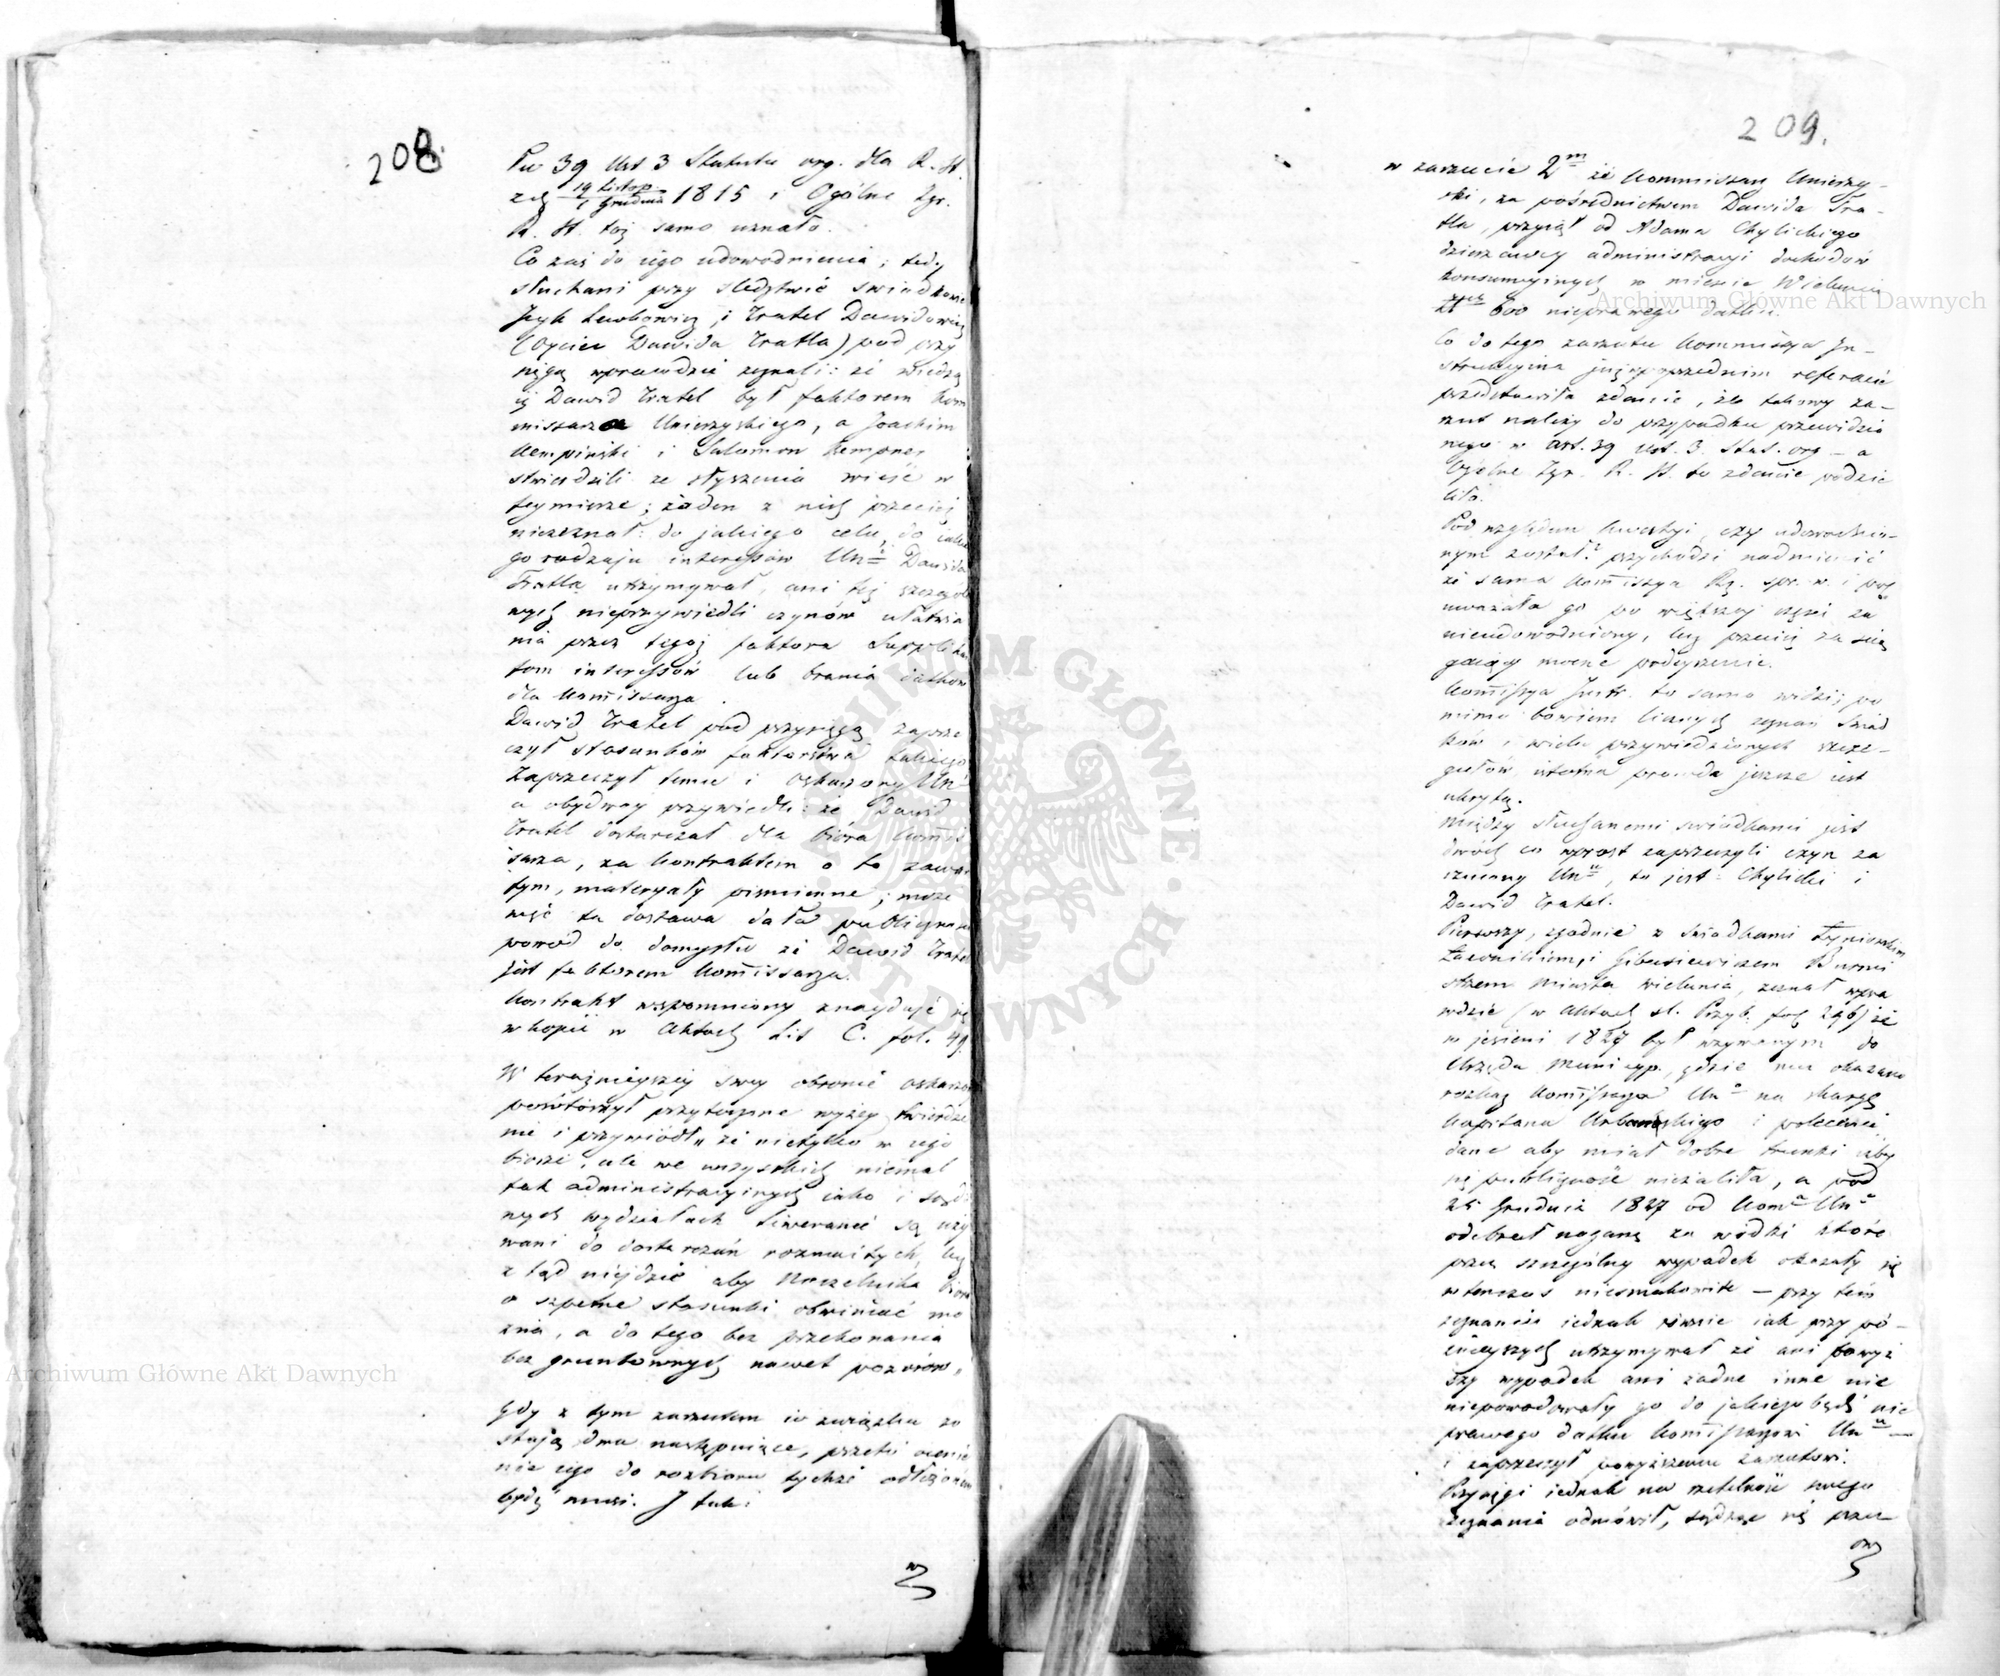 208.
Pu 39 Ust 3 Statutu org. dla R. St.
z dń 19 Listop. / 1 Grudnia 1815 i Ogólne Zgr.
R. St. toż samo uznało.
Co zaś do jego udowodnienia; tedy
słuchani przy śledztwie świadkowie
Icyk Lewkowicz, i Tratel Dawidowicz
(Oyciec Dawida Tratla) pod przy
sięgą wprawdzie zeznali: że wiedzą
iż Dawid Tratel był faktorem Kom
missarza Unierzyskiego, a Joachim
Kempiński i Salomon Kempner
stwierdzili ze słyszenia wieść w
tey mierze; żaden z nich przeciej
niezeznał: do jakiego celu, do jakie
go rodzaju interessów Un° Dawida
Tratla utrzymywał, ani też szczegól
nych nieprzywiedli czynów ułatwia
nia przez tegoż faktora Supplikan
tom interessów lub brania datków
dla Kommissarza.
Dawid Tratel pod przysięgą zaprze
czył stosunków faktorstwa takiego
Zaprzeczył temu i Oskarżony Un°
a obydway przywiedli: że Dawid
Tratel dostarczał dla bióra Kommis
sarza, za kontraktem o to zawar
tym, materyały piśmienne; może
więc ta dostawa dała publiczności
powod do domysłu że Dawid Tratel
jest faktorem Kommissarza.
Kontrakt wspomniony znayduje się
w kopii w Aktach Lit C. fol. 49.
W teraźnieyszey swey obronie oskarżony
powtórzył przytoczone wyżey twierdze
nie i przywiódł „że nietylko w jego
biórze, ale we wszystkich niemal
tak administracyinych jako i sądo
wych wydziałach Liweranci są uży
wani do dostarczań rozmaitych, lecz
z tąd niejdzie aby Naczelnika bióra
o szpetne stosunki obwiniać mo
żna, a do tego bez przekonania
bez gruntownych nawet pozorów„
Gdy z tym zarzutem w związku zo
stają dwa następujące, przeto ocenie
nie jego do rozbioru tychże odłożonem
bydź musi. I tak:
w
209.
w zarzucie 2m że Kommissarz Unierzy-
ski, za pośrednictwem Dawida Tra-
tla, przyiął od Adama Chylickiego
dzierżawcy administracyi dochodów
konsumcyinych w mieście Wieluniu
Zł 600 nieprawego datku.
Co do tego zarzutu Kommissya In-
strukcyina już w poprzednim referacie
przedstawiła zdanie, że takowy za-
rzut należy do przypadku przewidzia
nego w art. 39 ust. 3. Stat. org - a
Ogólne Zgr. R. St. to zdanie podzie
liło.
Pod względem kwestyi, czy udowodnio-
nym został? przychodzi nadmienić
że sama Kommissya Rz. spr. w. i pol
uważała go po większey części za
nieudowodniony, lecz przeciej za ścią
gaiący mocne podeyrzenie.
Kommissya Instr. to samo widzi; po
mimo bowiem licznych zeznań świad
ków i wielu przywiedzionych szcze-
gułów istotna prawda jeszcze jest
ukrytą.
Między słuchanemi świadkami jest
dwóch co wprost zaprzeczyli czyn za
rzucony Un°, to jest: Chylicki i
Dawid Tratel.
Pierwszy, zgodnie z świadkami
Ławnikiem, i Burmi
strzem Miasta Wielunia, zeznał wpra
wdzie (w Aktach śl. Przyb. fol 246) że
w jesieni 1827 był wzywanym do
Urzędu Municyp., gdzie mu okazano
rozkaz Kommissarza Un° na skargę
Kapitana Urbańskiego i polecenie
dane aby miał dobre trunki aby
się publiczność nieżaliła, a pod
25 Grudnia 1827 od Kom° Un°
odebrał naganę za wódki które
przez szczególny wypadek okazały się
wtenczas niesmakowite - przy tem
zeznaniu jednak równie jak przy pó-
źnieyszych utrzymywał że ani powyż
szy wypadek ani żadne inne nie
niepowodowały go do jakiegobądź nie
prawego datku Kommissarzowi Un° -
i zaprzeczył powyższemu zarzutowi.
Przysięgi jednak na rzetelność swego
zeznania odmówił, sądząc się przez
ow
Archiwum Główne Akt Dawnych
Archiwum Główne Akt Dawnych
ARCHIWUM GŁÓWNE AKT DAWNYCH